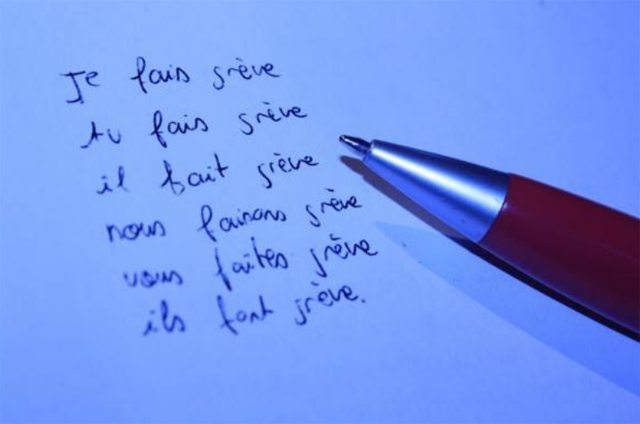 Je fais grève
tu fais grève
il fait grève
nous faisons grève
vous faites grève
ils font grève.